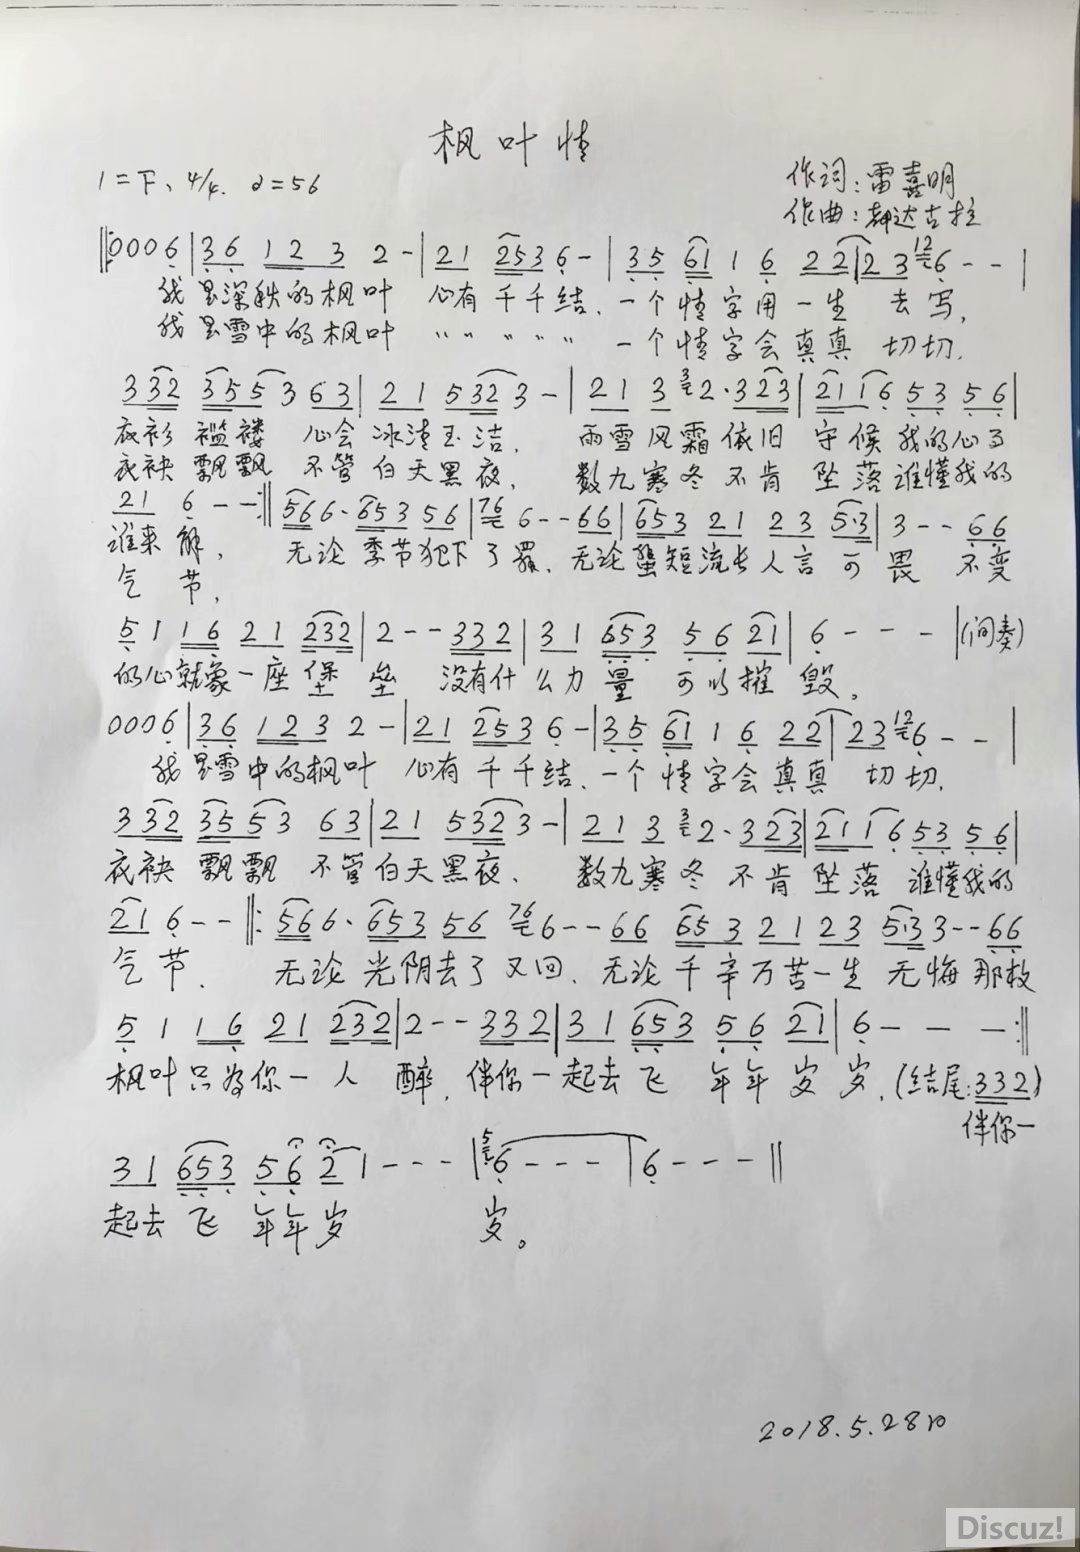 枫叶情
1=F、4/4. ♩=56
作词:雷喜明
作曲:都达古拉
‖:0006|36 123 2-|21 2536-|35 61 1 6 22|23 12 6--|
我是深秋的枫叶 心有千千结.一个情字用一生 去写,
我是雪中的枫叶 〃 〃 〃 〃 〃 一个情字会真真 切切.
332 3553 63|21 5323-|21 3 3 2·323|2116 53 56|
衣衫褴褛 心会冰清玉洁, 雨雪风霜依旧 守候 我的心事
衣袂飘飘 不管白天黑夜, 数九寒冬不肯 坠落谁懂我的
21 6--:‖566·653 56|76 6--66|653 21 23 5·3|3--66
谁来解, 无论季节犯下了罪,无论蜚短流长人言可畏 不变
气节,
5 1 16 21 232|2--332|31 653 56 21|6---|(间奏)
的心就象一座堡垒 没有什么力量 可以摧毁。
0006|36 123 2-|21 2536-|35 61 1 6 22|23 12 6--|
我是雪中的枫叶 心有千千结.一个情字会真真 切切.
332 3553 63|21 5323-|21 3 3 2·323|2116 53 56|
衣袂飘飘 不管白天黑夜、 数九寒冬不肯坠落 谁懂我的
21 6--‖:566·653 56 76 6--66 653 21 23 5·3 3--66
气节. 无论光阴去了又回.无论千辛万苦一生无悔那枚
5 1 16 21 232|2--332|31 653 56 21|6---:‖
枫叶只为你一人 醉,伴你一起去飞 年年岁岁.(结尾:332)
伴你一
31 653 56 2 1---|5 6---|6---‖
起去飞 年年岁 岁。
2018.5.28日
Discuz!